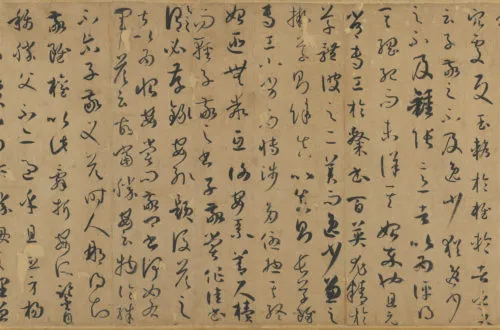 宮而更反玉輅於椎輪者乎又
云子敬之不及逸少猶逸少
之不及鍾張意者以為評得
其綱紀而未詳其始卒也且元
常專工於隸書百英尤精於
草體彼之二美而逸少兼之
擬草則餘真比真則長草雖
專工小劣而博涉多優揔其終
始匪無乖互謝安素善尺櫝
而輕子敬之書子敬嘗作佳書
與之謂必存錄安輒題後答之
甚以為恨安嘗問敬卿書何如右
軍答云故當勝安云物論殊
不尒子敬又答時人那得知
敬雖權以此辭折安所鑒自
稱勝父不亦過乎且立身揚